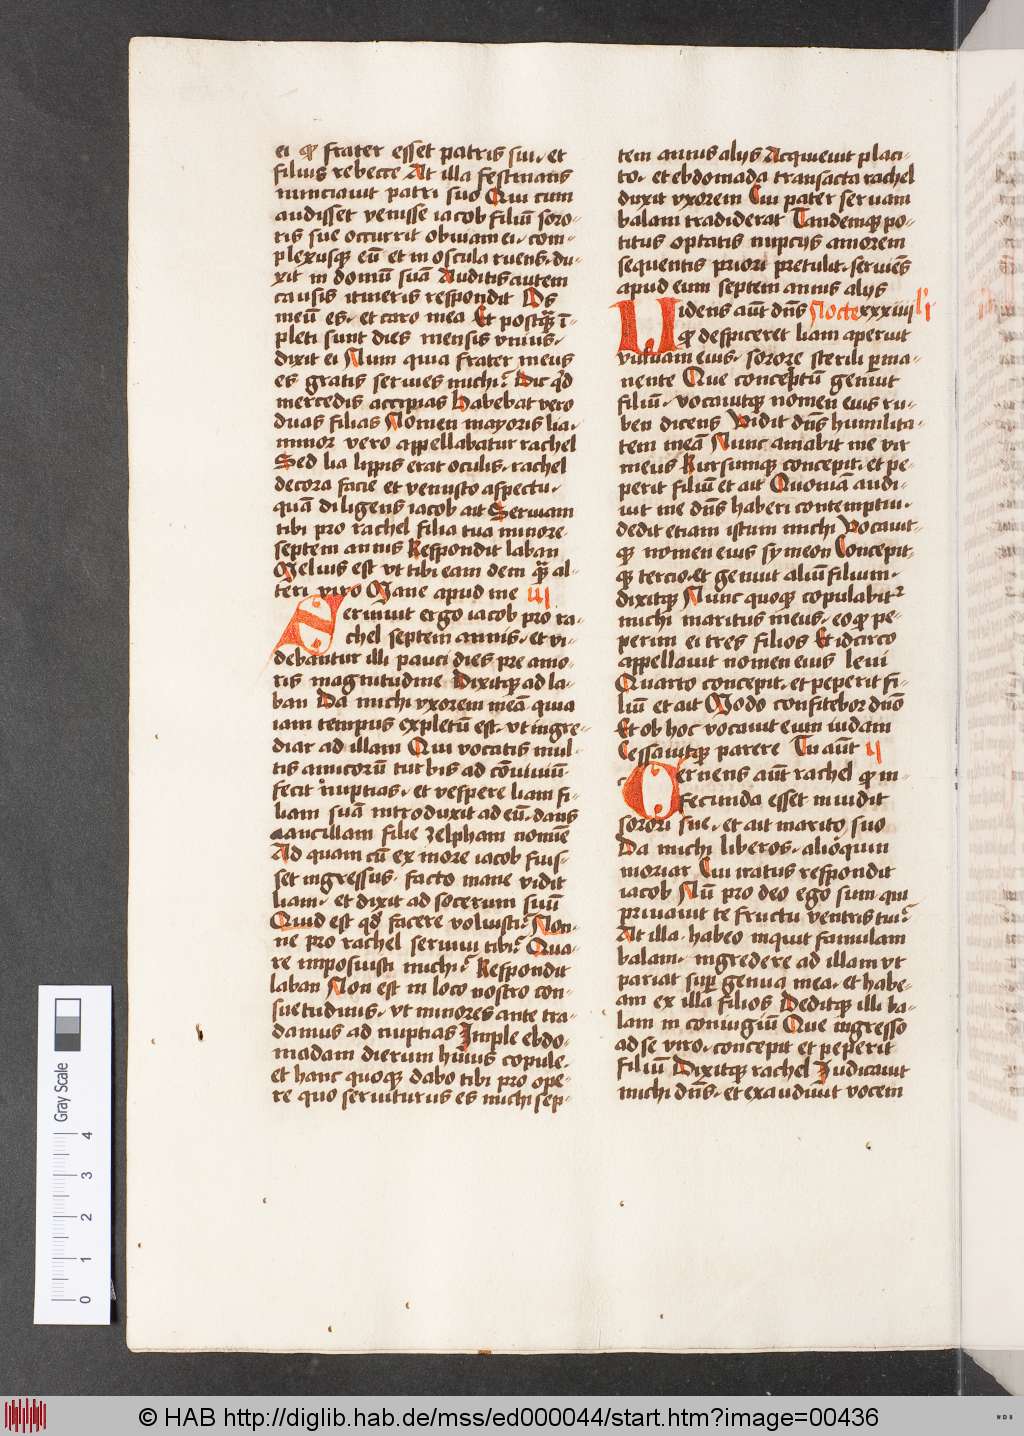 ei ꝙ frater esset patris sui· et
filius rebecce At illa festinans
nunciauit patri suo Qui cum
audisset venisse iacob filiū soro-
ris sue occurrit obuiam ei· com-
plexusqꝫ eū et in oscula ruens· du-
xit in domū suā Auditis autem
causis itineris respondit Os
meū es· et caro mea Et postqꝫ ī-
pleti sunt dies mensis vnius·
dixit ei Num quia frater meus
es gratis seruies michi? Dic qd
mercedis accipias Habebat vero
duas filias Nomen mayoris lia·
minor vero appellabatur rachel
Sed lia lippis erat oculis· rachel
decora facie et venusto aspectu·
quā diligens iacob ait Seruiam
tibi pro rachel filia tua minore
septem annis Respondit laban
Melius est vt tibi eam dem qꝫ al-
teri viro Mane apud me III
Seruiuit ergo iacob pro ra-
chel septem annis· et vi-
debantur illi pauci dies pre amo-
ris magnitudine Dixitqꝫ ad la-
ban Da michi vxorem meā quia
iam tempus expletū est· vt ingre-
diar ad illam Qui vocatis mul-
tis amicorū turbis ad cōuiuiū
fecit nuptias· et vespere liam fi-
liam suā introduxit ad eū· dans
ancillam filie zelpham nomīe
Ad quam cū ex more iacob fuis-
set ingressus· facto mane vidit
liam· et dixit ad socerum suū
Quid est qd facere voluisti? Non-
ne pro rachel seruiui tibi? Qua-
re imposuisti michi? Respondit
laban Non est in loco nostro con-
suetudinis· vt minores ante tra-
damus ad nuptias Imple ebdo-
madam dierum huius copule·
et hanc quoqꝫ dabo tibi pro ope-
re quo seruiturus es michi sep-
tem annis alijs Acquieuit placi-
to· et ebdomada transacta rachel
duxit vxorem Cui pater seruam
balam tradiderat Tandemqꝫ po-
titus optatis nupcijs amorem
sequentis priori pretulit· seruiēs
apud eum septem annis alijs
Uidens aūt dn̄s Nocte xxxiiij lī
ꝙ despiceret liam aperuit
vuluam eius· sorore sterili ꝑma-
nente Que conceptū genuit
filiū· vocauitqꝫ nomen eius ru-
ben dicens Vidit dn̄s humilita-
tem meā Nunc amabit me vir
meus Rursumqꝫ concepit· et pe-
perit filiū et ait Quoniā audi-
uit me dn̄s haberi contemptui·
dedit etiam istum michi Vocauit-
qꝫ nomen eius symeon Concepit-
qꝫ tercio· et genuit aliū filium·
dixitqꝫ Nunc quoqꝫ copulabitr
michi maritus meus· eo ꝙ pe-
perim ei tres filios Et idcirco
appellauit nomen eius leui
Quarto concepit· et peperit fi-
liū et ait Modo confitebor dn̄o
Et ob hoc vocauit eum iudam
Cessauitqꝫ parere Tu aūt II
Cernens aūt rachel ꝙ in-
fecunda esset inuidit
sorori sue· et ait marito suo
Da michi liberos· alioquin
moriar Cui iratus respondit
iacob Nū pro deo ego sum· qui
priuauit te fructu ventris tui?
At illa· habeo inquit famulam
balam· ingredere ad illam vt
pariat suꝑ genua mea· et habe-
am ex illa filios Deditqꝫ illi ba-
lam in coniugiū Que ingresso
ad se viro· concepit et peperit
filiū Dixitqꝫ rachel Iudicauit
michi dn̄s· et exaudiuit vocem
Gray Scale
0 1 2 3 4
© HAB http://diglib.hab.de/mss/ed000044/start.htm?image=00436